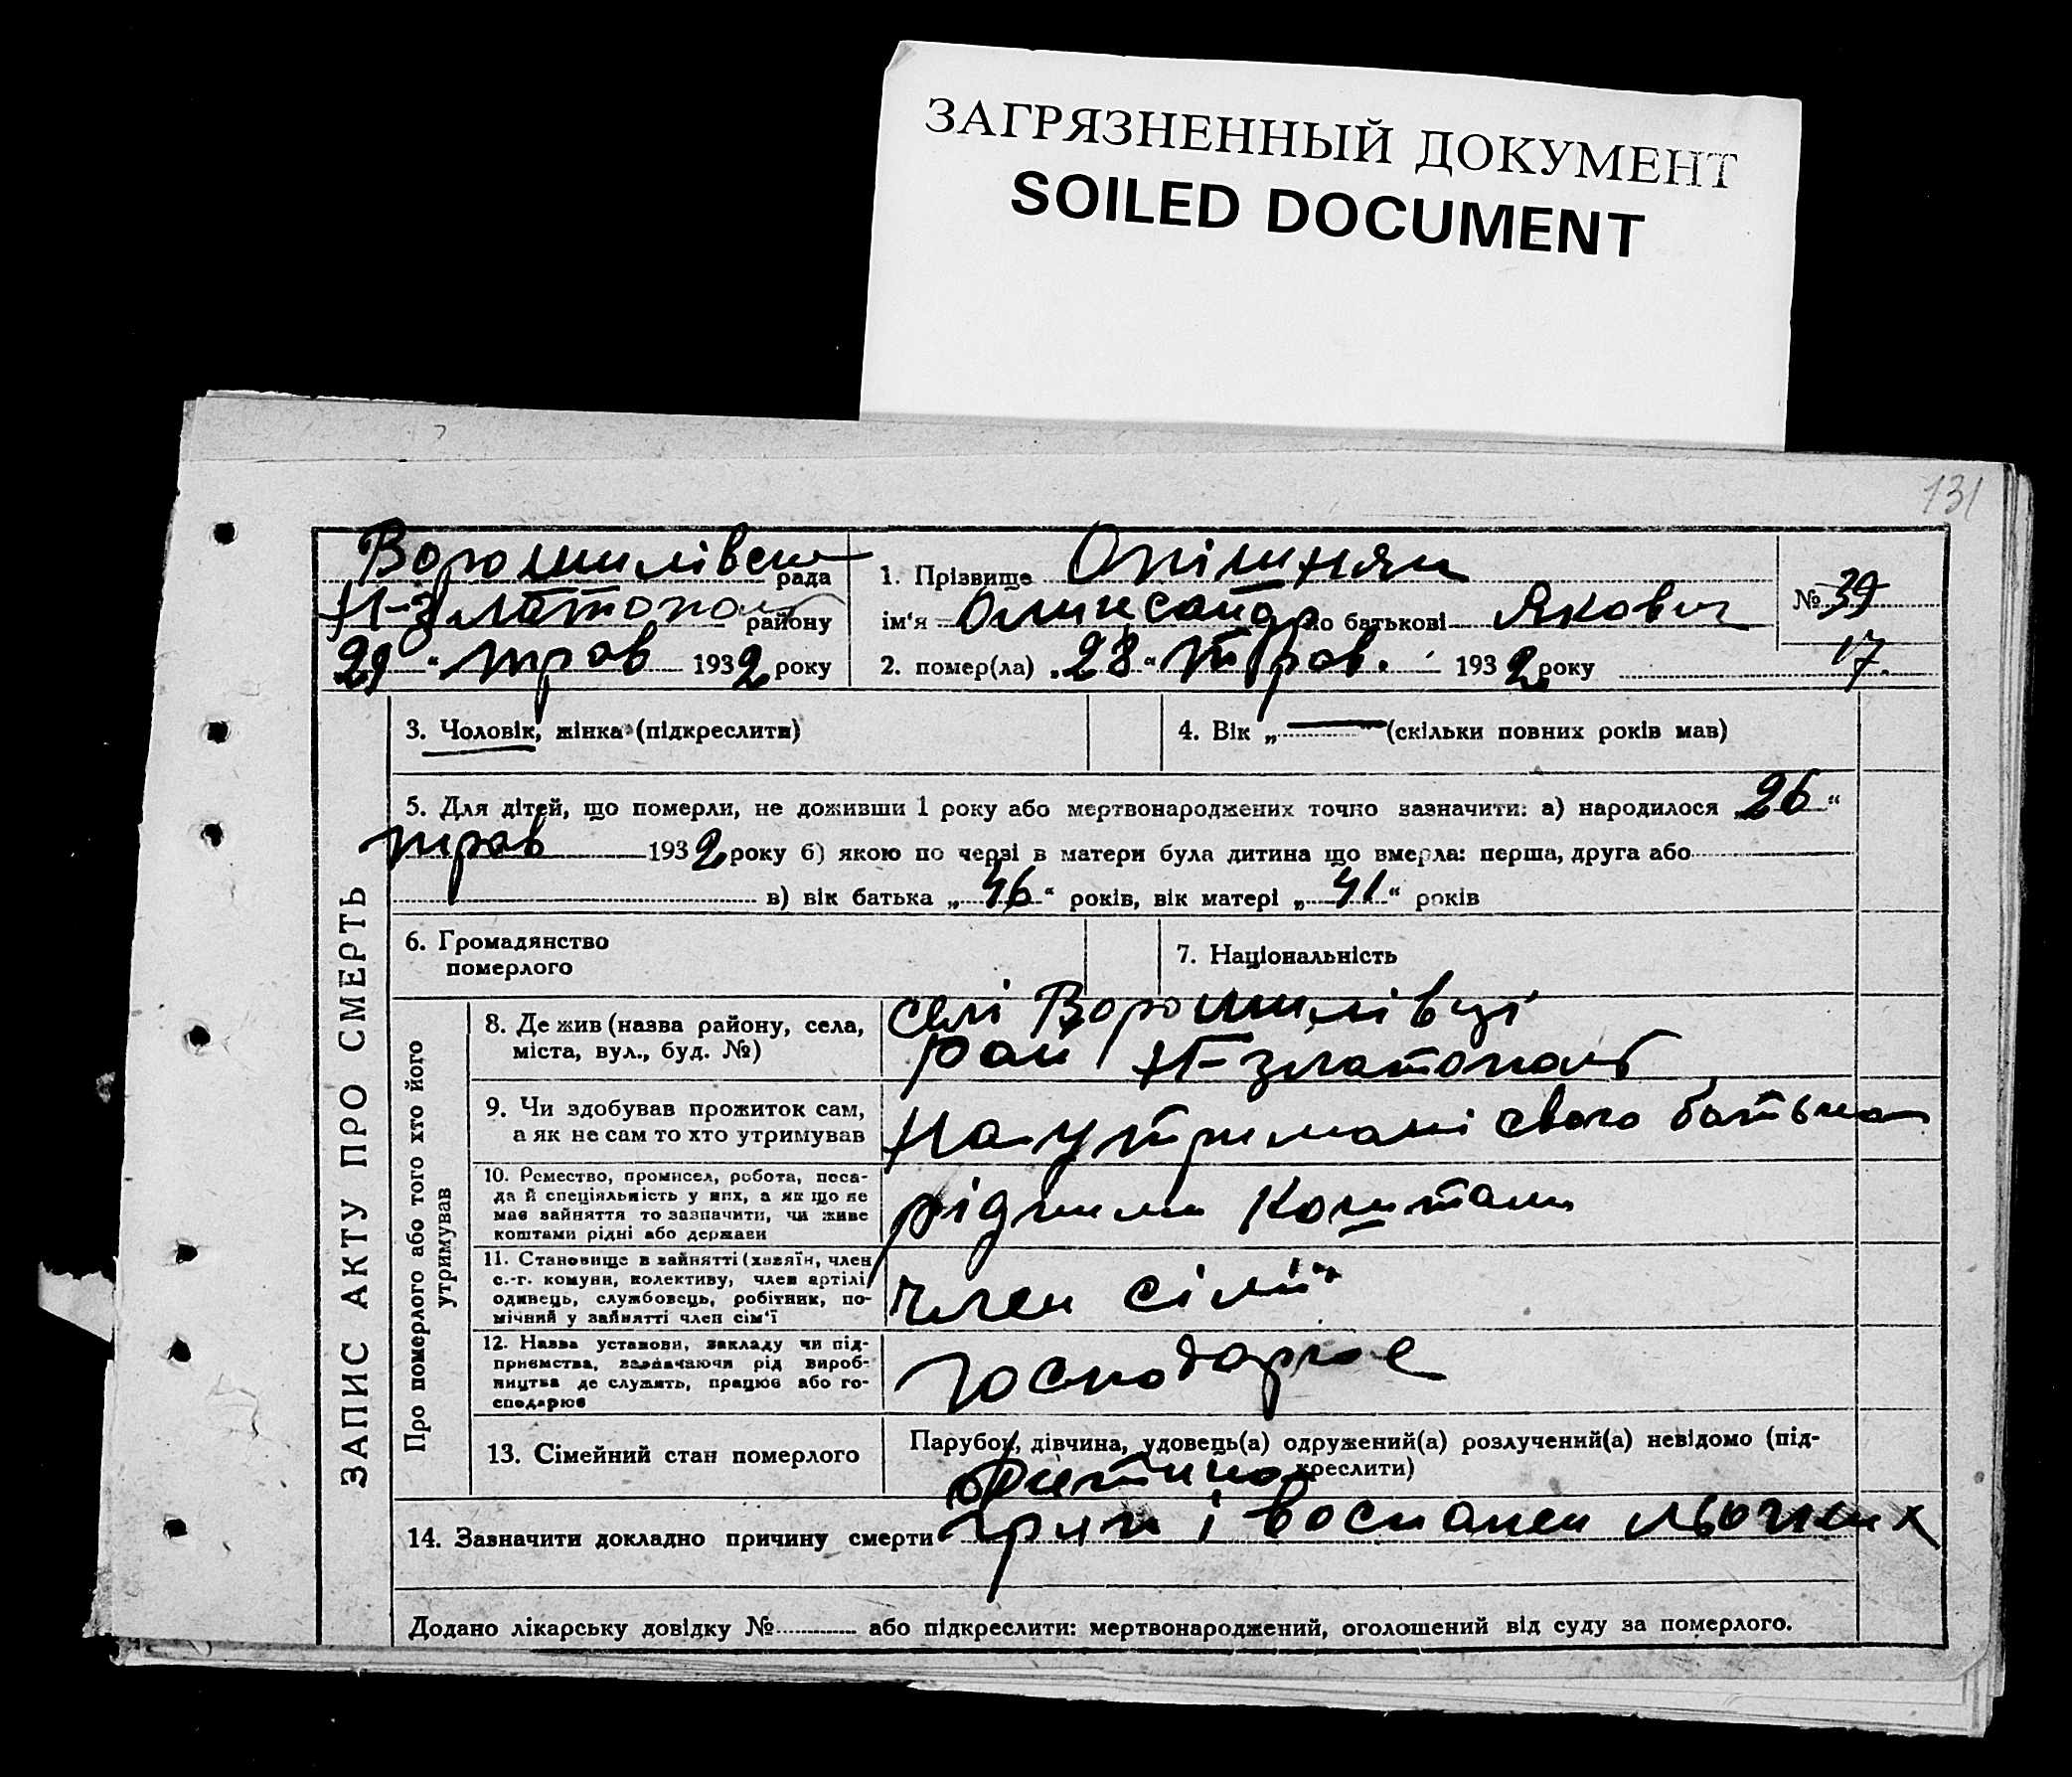 ЗАГРЯЗНЕННЫЙ ДОКУМЕНТ
SOILED DOCUMENT
131
Ворошилівськ рада
Н-Златополь району
29 " трав 1932 року
1. Прізвище Опішняк
ім'я Олександр по батькові Якович
2. помер(ла) „28" трав. 1932 року
№ 39
17.
ЗАПИС АКТУ ПРО СМЕРТЬ
3. Чоловік, жінка (підкреслити)
4. Вік „ — " (скільки повних років мав)
5. Для дітей, що померли, не доживши 1 року або мертвонароджених точно зазначити: а) народилося „26"
трав 1932 року б) якою по черзі в матери була дитина що вмерла: перша, друга або
в) вік батька „46" років, вік матері „41" років
6. Громадянство
померлого
7. Національність
Про померлого або того хто його
утримував
8. Де жив (назва району, села,
міста, вул., буд. №)
селі Ворошилівці
рай Н-Златополь
9. Чи здобував прожиток сам,
а як не сам то хто утримував
На утримані свого батька
10. Ремество, промисел, робота, поса-
да й спеціяльність у них, а як що не
має зайняття то зазначити, чи живе
коштами рідні або держави
рідними коштами
11. Становище в зайнятті (хазяїн, член
с.-г. комуни, колективу, член артілі,
одинець, службовець, робітник, по-
мічний у зайнятті член сім'ї
член сімї
12. Назва установи, закладу чи під-
приємства, зазначаючи рід вироб-
ництва де служить, працює або го-
сподарює
господарює
13. Сімейний стан померлого
Парубок, дівчина, удовець(а) одружений(а) розлучений(а) невідомо (під-
креслити)
Дитина
14. Зазначити докладно причину смерти грип і воспален льогких
Додано лікарську довідку № або підкреслити: мертвонароджений, оголошений від суду за померлого.